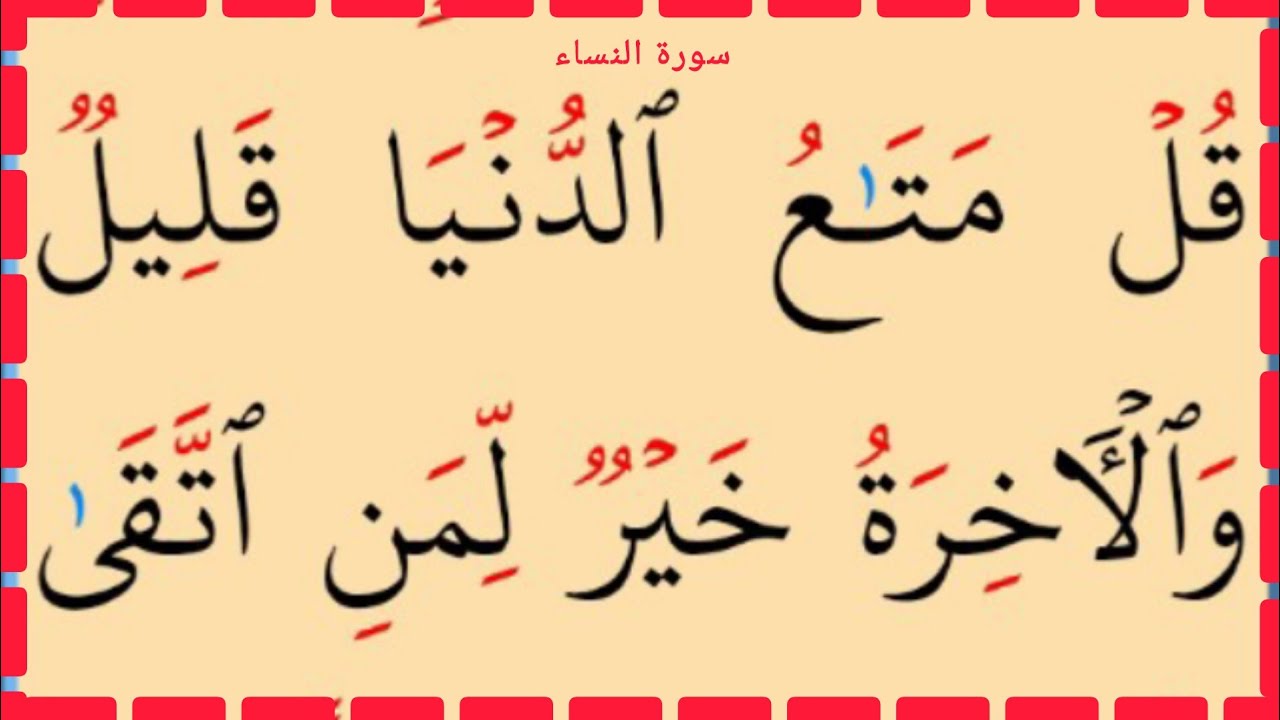 سورة النساء
قُلۡ مَتَـٰعُ ٱلدُّنۡيَا قَلِيلࣱ
وَٱلۡأَخِرَةُ خَيۡرࣱ لِّمَنِ ٱتَّقَىٰ